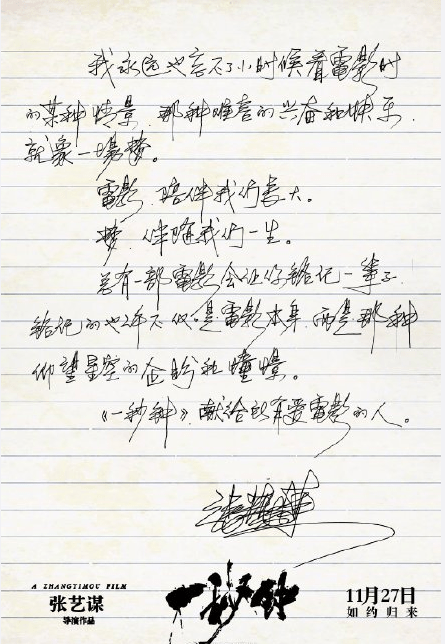 我永远也忘不了小时候看電影时
的某种情景,那种难言的兴奋和快乐,
就象一場梦。
電影,陪伴我们長大。
梦,伴随我们一生。
总有一部電影会让你铭记一輩子,
铭记的也许不仅是電影本身,而是那种
仰望星空的企盼和憧憬。
《一秒钟》,献给所有爱電影的人。
张艺谋
A ZHANGYIMOU FILM
张艺谋
导演作品
一秒钟
11月27日
如约归来